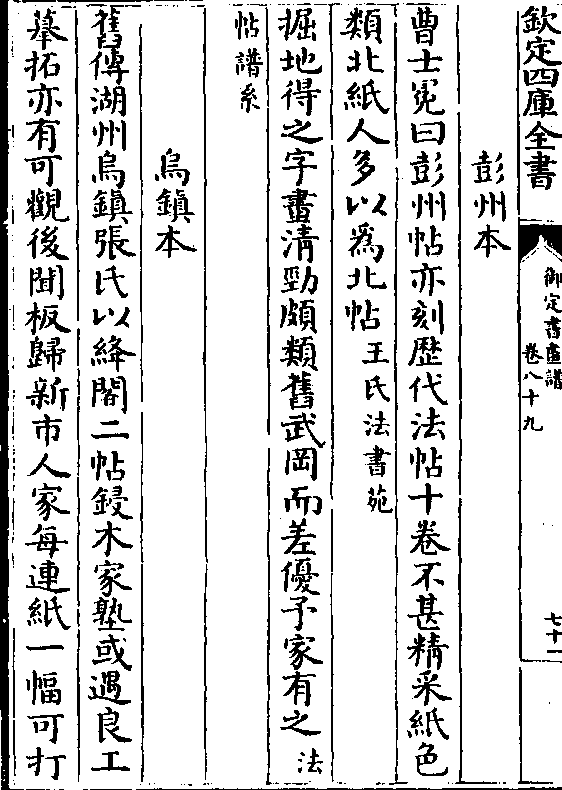 欽定四庫全書
御定書畫譜
卷八十九
七十一
彭州本
曹士冕曰彭州帖亦刻歴代法帖十卷不甚精采紙色
類北紙人多以為北帖王氏法書苑
掘地得之字畫清勁頗類舊武岡而差優予家有之法
帖譜系
烏鎮本
舊傳湖州烏鎮張氏以絳閣二帖鋟木家塾或遇良工
摹拓亦有可觀後聞板歸新市人家每連紙一幅可打